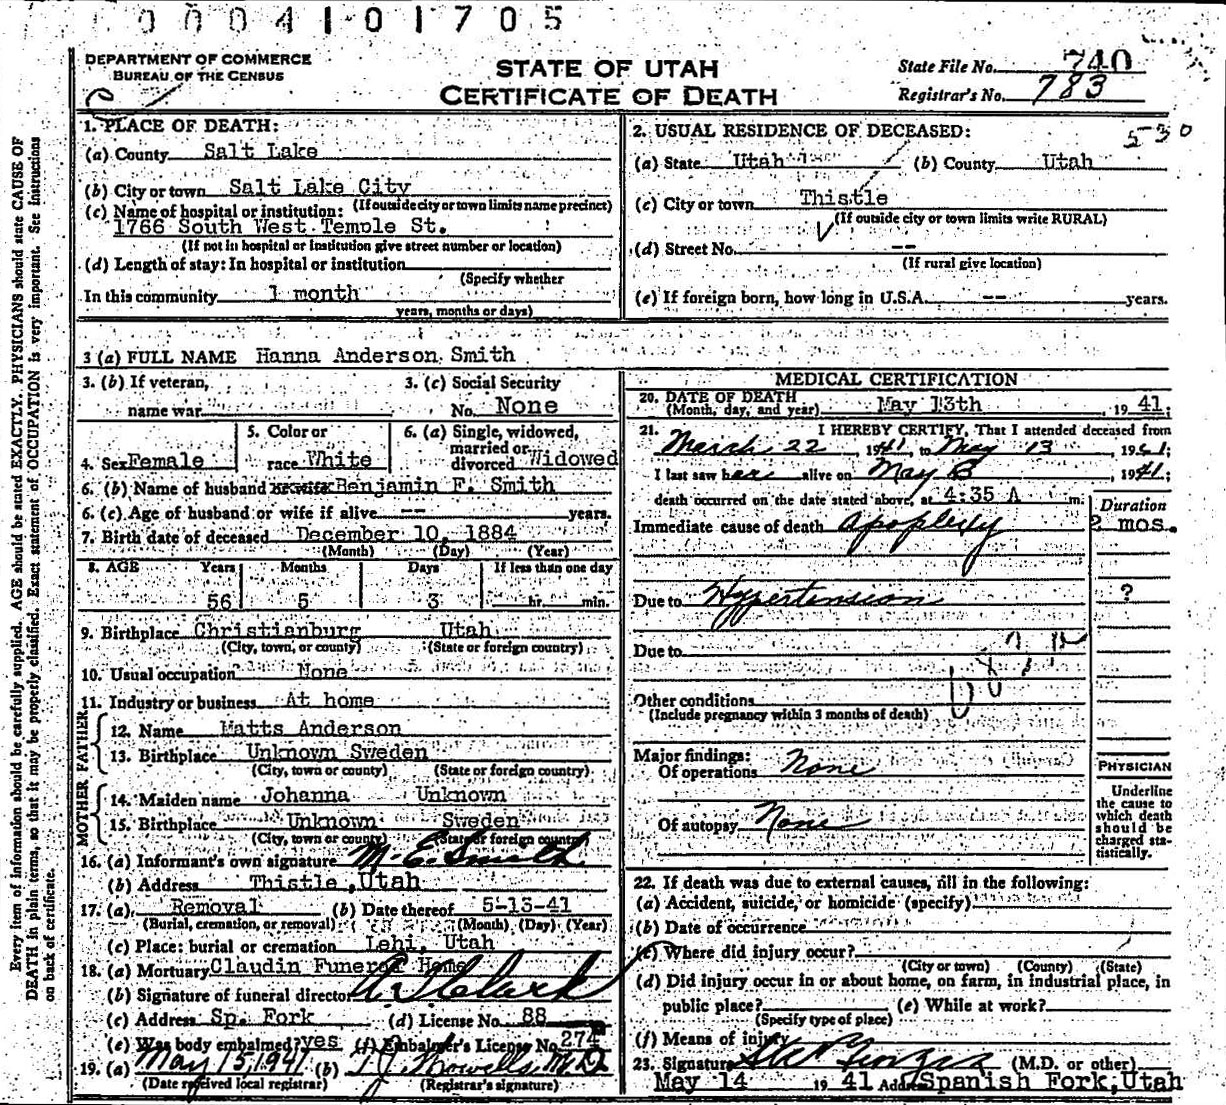 0004101705
DEPARTMENT OF COMMERCE
BUREAU OF THE CENSUS
STATE OF UTAH
CERTIFICATE OF DEATH
State File No. 740
Registrar's No. 783
Every item of information should be carefully supplied. AGE should be stated EXACTLY. PHYSICIANS should state CAUSE OF
DEATH in plain terms, so that it may be properly classified. Exact statement of OCCUPATION is very important. See instructions
on back of certificate.
1. PLACE OF DEATH:
(a) County Salt Lake
(b) City or town Salt Lake City
(If outside city or town limits name precinct)
(c) Name of hospital or institution:
1766 South West Temple St.
(If not in hospital or institution give street number or location)
(d) Length of stay: In hospital or institution
(Specify whether
In this community 1 month
years, months or days)
2. USUAL RESIDENCE OF DECEASED: 530
(a) State Utah (b) County Utah
(c) City or town Thistle
(If outside city or town limits write RURAL)
(d) Street No. --
(If rural give location)
(e) If foreign born, how long in U.S.A. -- years.
3 (a) FULL NAME Hanna Anderson Smith
3. (b) If veteran, 3. (c) Social Security
name war No. None
5. Color or 6. (a) Single, widowed,
married or
4. Sex Female race White divorced Widowed
6. (b) Name of husband or wife Benjamin F. Smith
6. (c) Age of husband or wife if alive -- years.
7. Birth date of deceased December 10, 1884
(Month) (Day) (Year)
8. AGE Years Months Days If less than one day
56 5 3 hr. min.
9. Birthplace Christianburg Utah
(City, town, or county) (State or foreign country)
10. Usual occupation None
11. Industry or business At home
FATHER
12. Name Matts Anderson
13. Birthplace Unknown Sweden
(City, town or county) (State or foreign country)
MOTHER
14. Maiden name Johanna Unknown
15. Birthplace Unknown Sweden
(City, town or county) (State or foreign country)
16. (a) Informant's own signature M. E. Smith
(b) Address Thistle, Utah
17. (a) Removal (b) Date thereof 5-13-41
(Burial, cremation, or removal) (Month) (Day) (Year)
(c) Place: burial or cremation Lehi, Utah
18. (a) Mortuary Claudin Funeral Home
(b) Signature of funeral director
(c) Address Sp. Fork (d) License No. 88
(e) Was body embalmed? yes (f) Embalmer's License No. 274
19. (a) May 15, 1941 (b)
(Date received local registrar) (Registrar's signature)
MEDICAL CERTIFICATION
20. DATE OF DEATH
(Month, day, and year) May 13th, 1941;
21. I HEREBY CERTIFY, That I attended deceased from
March 22, 1941, to May 13, 1941;
I last saw her alive on May 13, 1941;
death occurred on the date stated above, at 4:35 A m.
Duration
Immediate cause of death Apoplexy 2 mos.
Due to Hypertension ?
Due to
Other conditions
(Include pregnancy within 3 months of death)
Major findings:
Of operations None
Of autopsy None
PHYSICIAN
Underline
the cause to
which death
should be
charged sta-
tistically.
22. If death was due to external causes, fill in the following:
(a) Accident, suicide, or homicide (specify)
(b) Date of occurrence
(c) Where did injury occur?
(City or town) (County) (State)
(d) Did injury occur in or about home, on farm, in industrial place, in
public place? (e) While at work?
(Specify type of place)
(f) Means of injury
23. Signature (M.D. or other)
May 14 1941 Address Spanish Fork, Utah